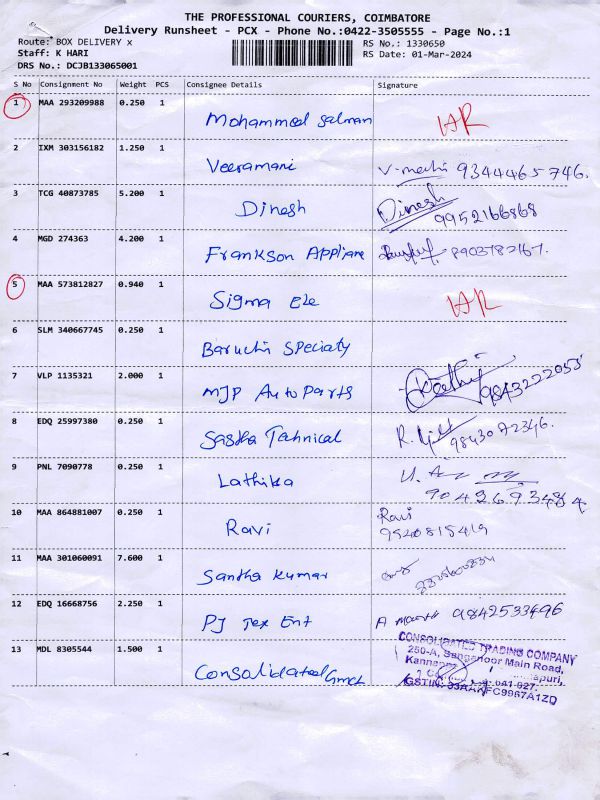 THE PROFESSIONAL COURIERS, COIMBATORE
Delivery Runsheet - PCX - Phone No.:0422-3505555 - Page No.:1
Route: BOX DELIVERY x RS No.: 1330650
Staff: K HARI RS Date: 01-Mar-2024
DRS No.: DCJB133065001
S No Consignment No Weight PCS Consignee Details Signature
1 MAA 293209988 0.250 1 Mohammed Salman
2 IXM 303156182 1.250 1 Veeramani 9344465746.
3 TCG 40873785 5.200 1 Dinesh Dinesh 9952166868
4 MGD 274363 4.200 1 Frankson Appliane 8903782167.
5 MAA 573812827 0.940 1 Sigma Ele
6 SLM 340667745 0.250 1 Baruchi Speciaty
7 VLP 1135321 2.000 1 MJP Auto Parts 9843222055
8 EDQ 25997380 0.250 1 Sastha Tahnical 9843072346.
9 PNL 7090778 0.250 1 Lathika
10 MAA 864881007 0.250 1 Ravi Ravi
11 MAA 301060091 7.600 1 Santha Kumar
12 EDQ 16668756 2.250 1 PJ Tex Ent 9842533496
13 MDL 8305544 1.500 1 Consolidated
CONSOLIDATED TRADING COMPANY
250-A, Sanganoor Main Road,